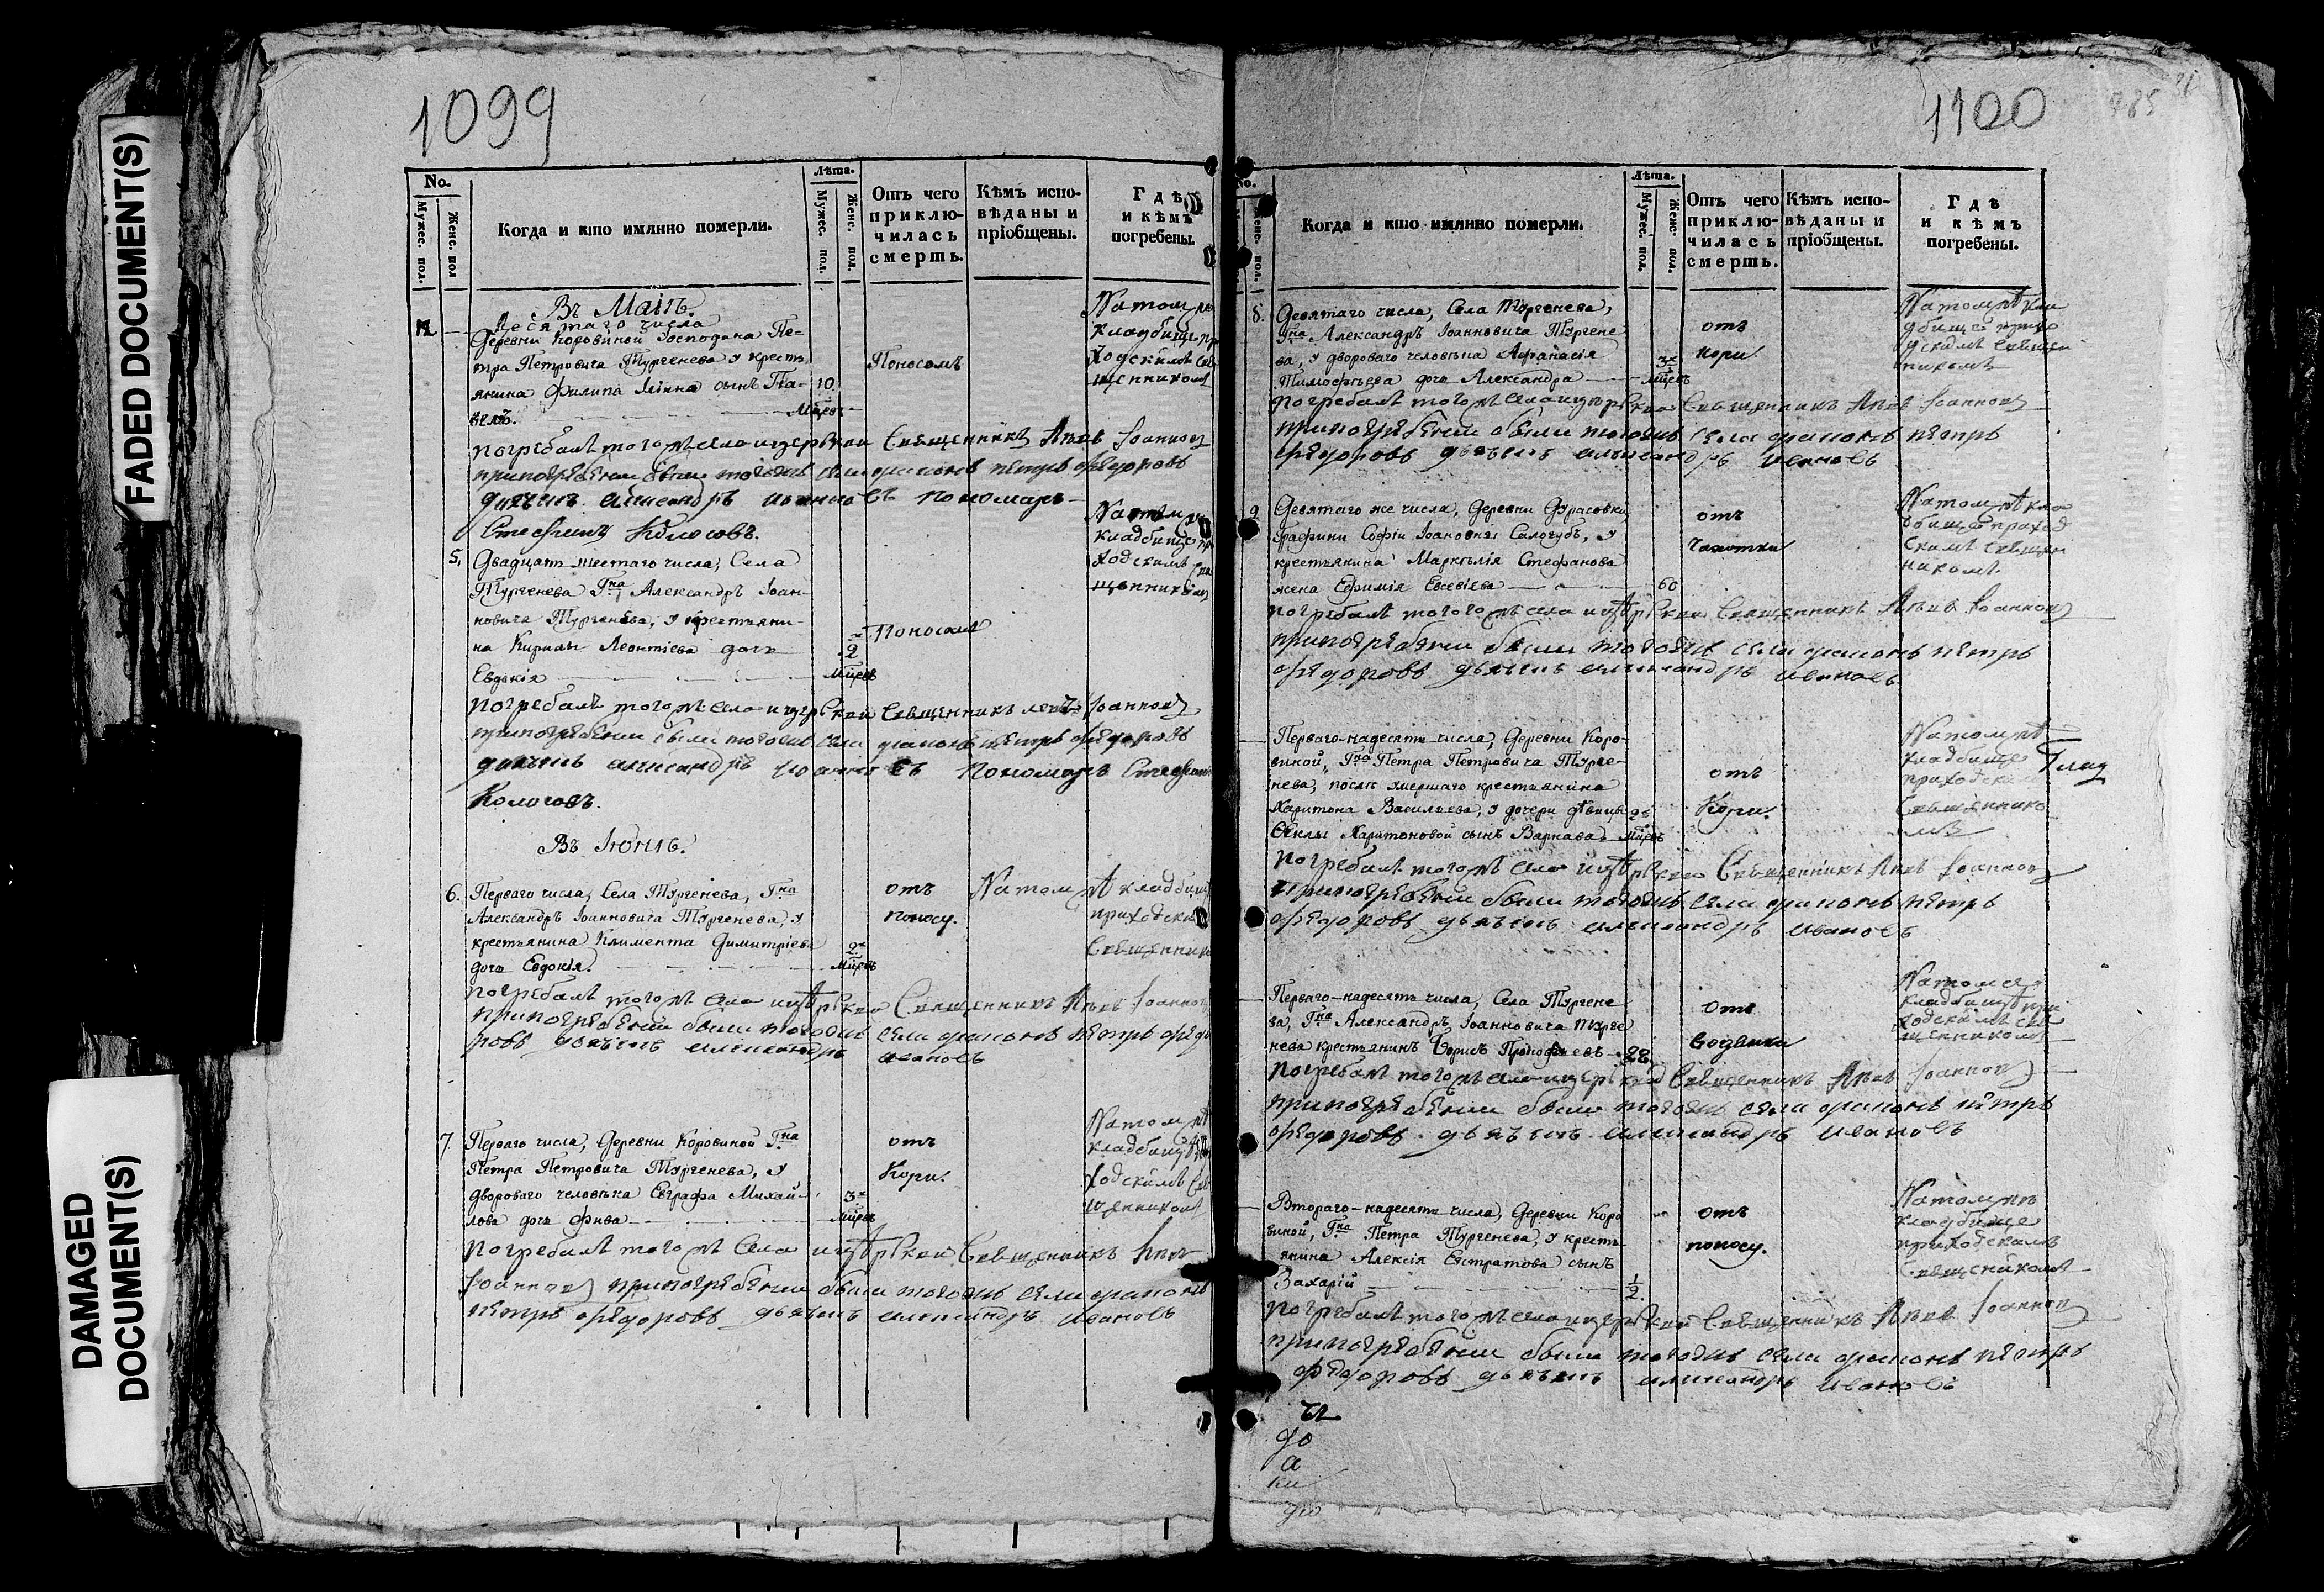 FADED DOCUMENT(S)
DAMAGED
DOCUMENT(S)
1099
No.
Мужес. пол.
Женс. пол
Когда и кто имянно померли.
Лѣта.
Мужес. пол.
Женс. пол.
Отъ чего
приклю-
чилась
смерть.
Кѣмъ испо-
вѣданы и
пріобщены.
Гдѣ
и кѣмъ
погребены.
Въ Маіѣ.
Десятаго числа
Деревни Коровиной Господина Пе-
тра Петровича Тургенева у крестъ
янина Филипа сынъ Па-
велъ.
10
Мцовъ
Поносомъ
На томъ же
кладбище при
ходскимъ свя
щенникомъ
погребалъ тогожъ села церькви священникъ Левъ Іоанновъ
припогребении были тогожъ села диаконъ петръ федоровъ
дьячекъ александръ ивановъ пономарь
Стефанъ Колосовъ.
5.
Двадцать шестаго числа, Села
Тургенева Гна Александръ Іоан-
новича Тургенева, у крестьяни-
на Кирилы Леонтіева дочь
Евдокія
2
Мцовъ
Поносомъ
На томъ же
кладбище при
ходскимъ свя
щенникомъ
погребалъ тогожъ села церькви священникъ левъ Іоанновъ
припогребении были тогожъ села диаконъ петръ федоровъ
дьячекъ александръ иоанновъ пономарь Стефанъ
Колосовъ.
Въ Іюнѣ.
6.
Перваго числа, Села Тургенева, Гна
Александръ Іоанновича Тургенева, у
крестьянина Климента Димитріева
дочь Евдокія.
2
Мцовъ
отъ
поносу.
На томъ же кладбище
приходским
священнико
погребалъ тогожъ села церькви священникъ Левъ Іоанновъ
припогребении были тогожъ села диаконъ петръ федо
ровъ дьячекъ александръ ивановъ
7.
Перваго числа, Деревни Коровиной Гна
Петра Петровича Тургенева, у
двороваго человѣка Евграфа Михай-
лова дочь Фива
3
Мцовъ
отъ
Кори.
На томъ же
кладбище при
ходскимъ свя
щенникомъ
погребалъ тогожъ села церькви священникъ Левъ
Іоанновъ припогребении были тогожъ села диаконъ
петръ федоровъ дьячекъ александръ ивановъ
1100
785
No.
Женс. пол.
Когда и кто имянно померли.
Лѣта.
Мужес. пол.
Женс. пол.
Отъ чего
приклю-
чилась
смерть.
Кѣмъ испо-
вѣданы и
пріобщены.
Гдѣ
и кѣмъ
погребены.
8.
Девятаго числа, Села Тургенева,
Гна Александръ Іоанновича Тургене
ва, у двороваго человѣка Афанасія
Тимофѣева дочь Александра
3
Мцовъ
отъ
кори.
На томъ же кла
дбище прихо
дскимъ священ
никомъ
погребалъ тогожъ села церькви священникъ Левъ Іоанновъ
припогребении были тогожъ села диаконъ петръ
федоровъ дьячекъ александръ ивановъ
9
Девятаго же числа, Деревни Дурасовки
Графини Софіи Іоановны Салогубъ, у
крестьянина Маркелія Стефанова
жена Ефимія Евсевіева
60
отъ
чахотки
На томъ же кла
дбище приход
скимъ священ
никомъ.
погребалъ тогожъ села церькви священникъ Левъ Іоанновъ
припогребении были тогожъ села диаконъ петръ
федоровъ дьячекъ александръ ивановъ
Перваго-надесять числа, Деревни Коро-
виной, Гна Петра Петровича Турге-
нева, послѣ умершаго крестьянина
Харитона Васильева, у дочери дѣвицы
Феклы Харитоновой сынъ Варнава
2
Мцовъ
отъ
Кори.
На томъ же
кладбище
приходским
священнико
мъ
погребалъ тогожъ села церькви священникъ Левъ Іоанновъ
припогребении были тогожъ села диаконъ петръ
федоровъ дьячекъ александръ ивановъ
Перваго-надесять числа, Села Тургене
ва, Гна Александръ Іоанновича Турге
нева крестьянинъ Борисъ Прокофьевъ
отъ
водянки
На томъ же
кладбище при
ходскимъ свя
щенникомъ
погребалъ тогожъ села церькви священникъ Левъ Іоанновъ
припогребении были тогожъ села диаконъ петръ
федоровъ дьячекъ александръ ивановъ
Втораго-надесять числа, Деревни Коро
виной, Гна Петра Тургенева, у кресть
янина Алексія Евстратова сынъ
Захарій
1/2
отъ
поносу.
На томъ же
кладбище
приходскимъ
священикомъ
погребалъ тогожъ села церькви священникъ Левъ Іоанновъ
припогребении были тогожъ села диаконъ петръ
федоровъ дьячекъ александръ ивановъ
до
а
ки